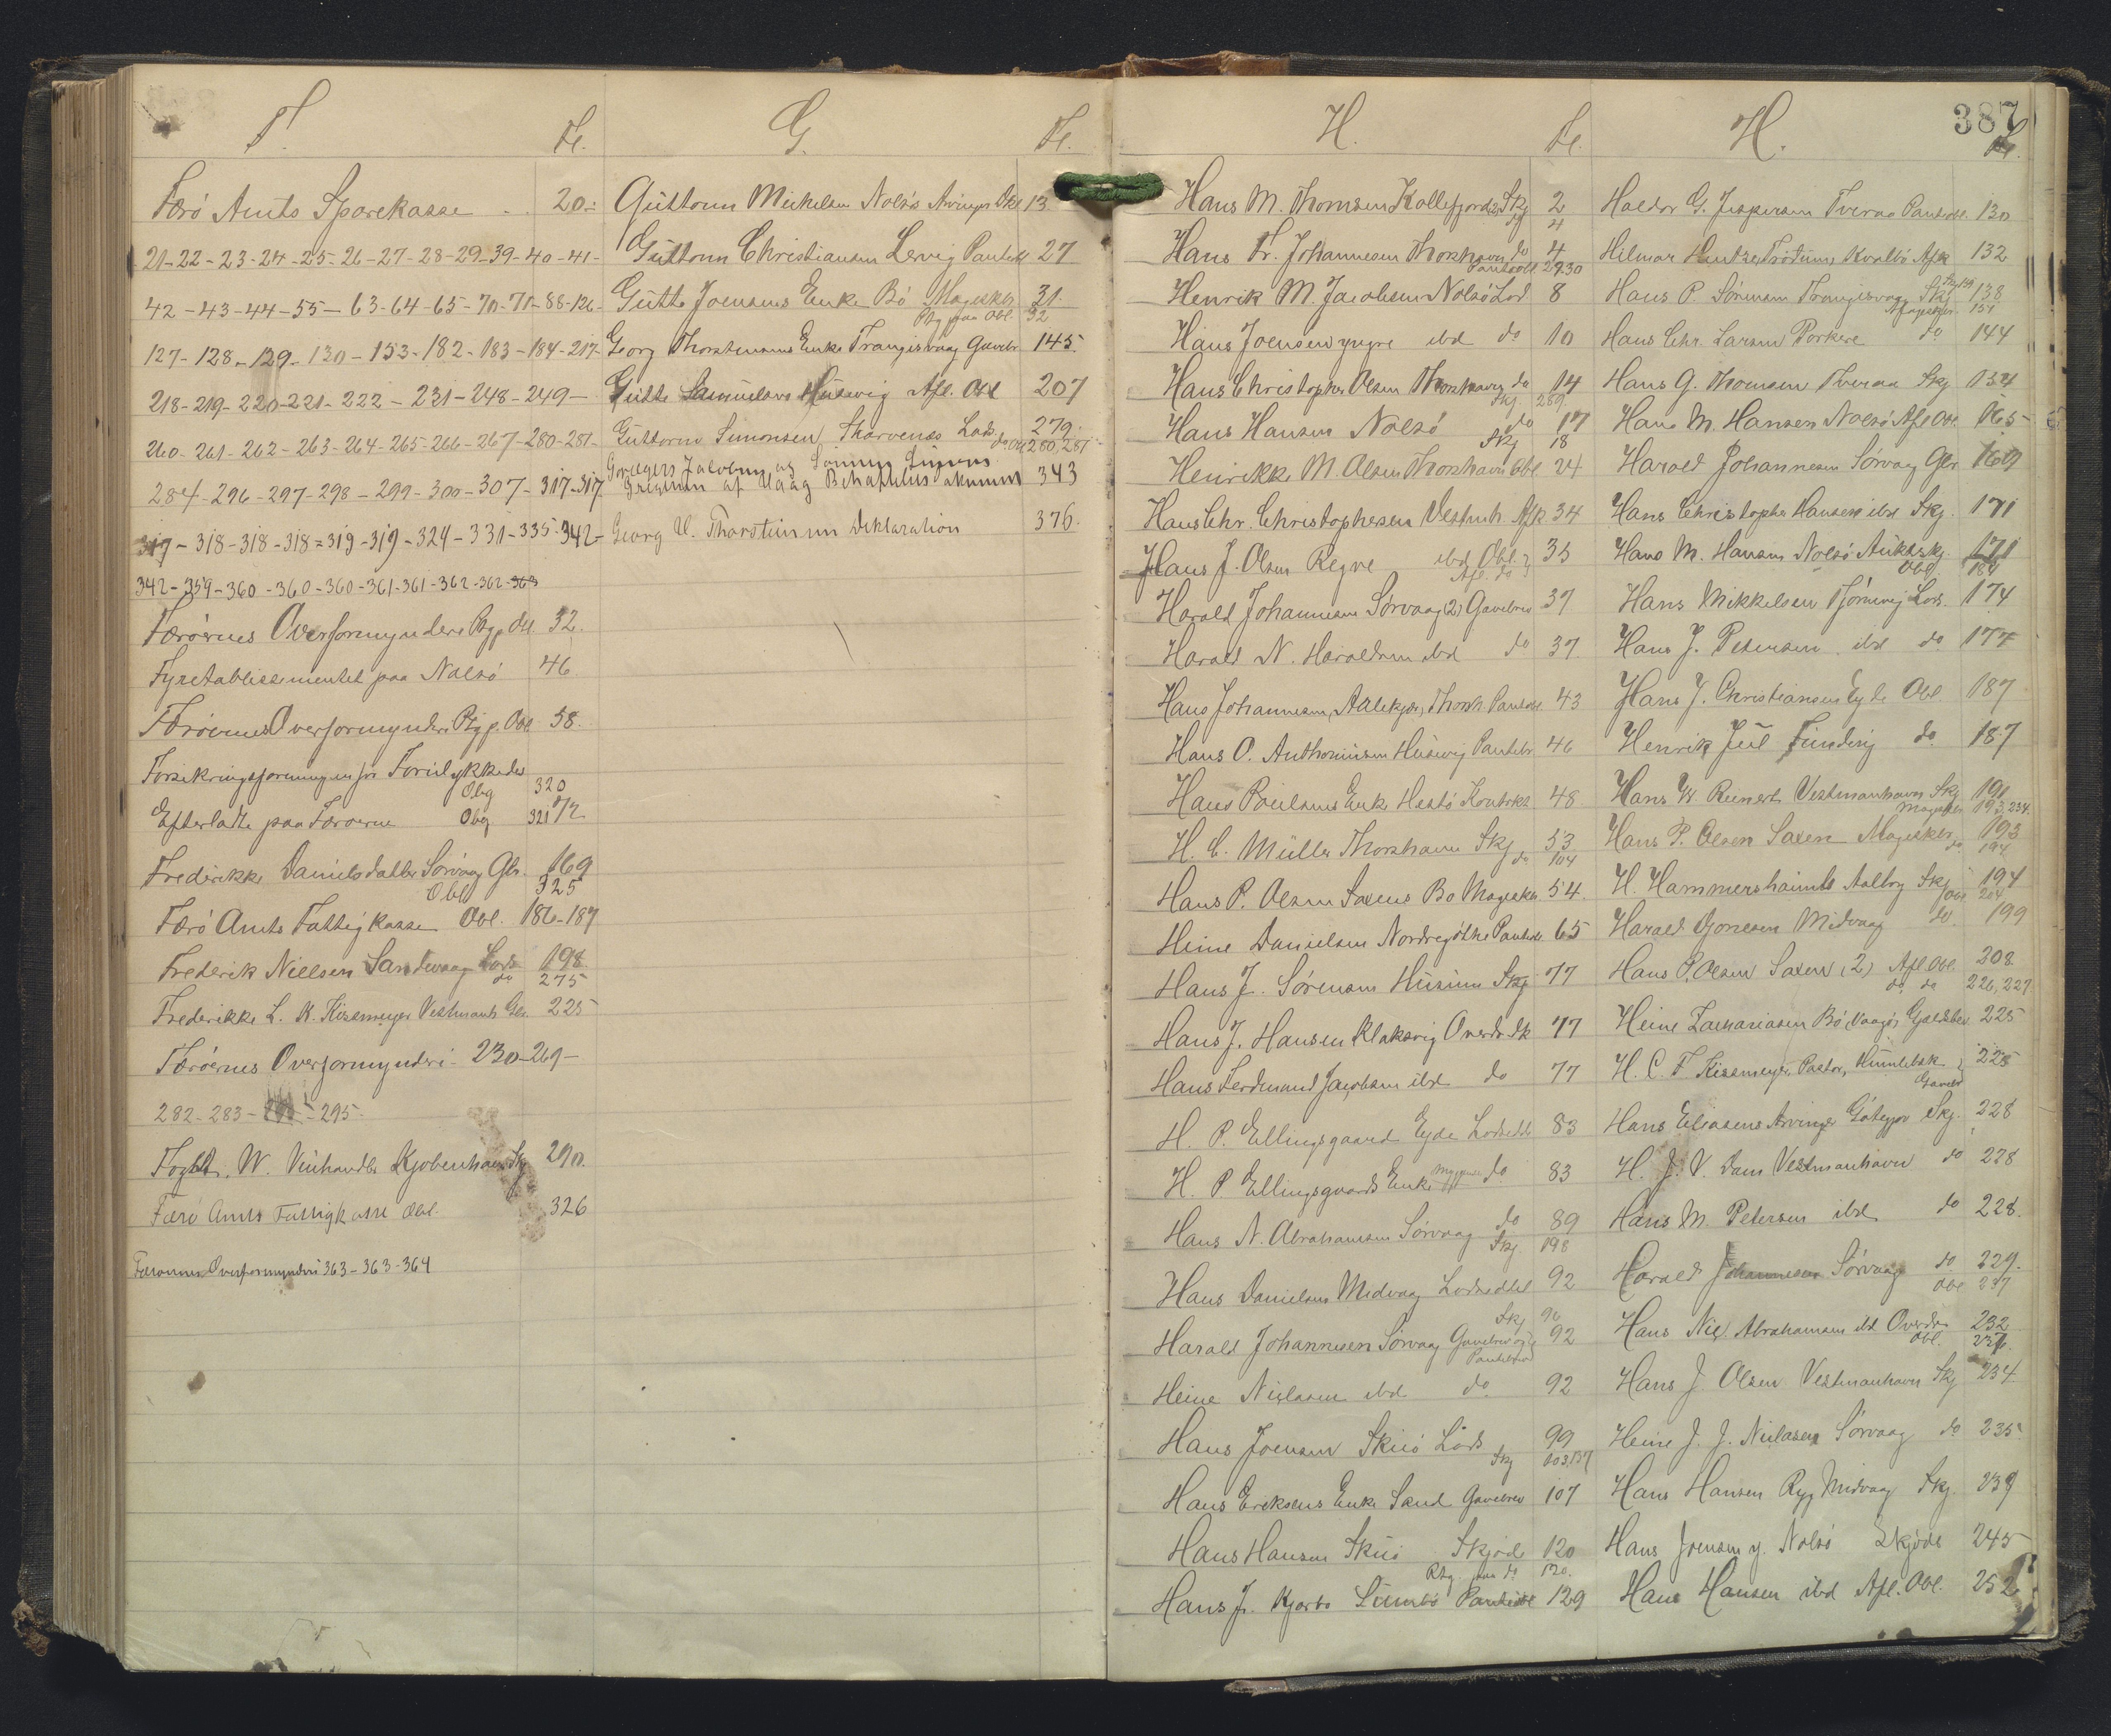 F.
Fl.
Færö Amts Sparekasse . . 20-
21-22-23-24-25-26-27-28-29-39-40-41-
42-43-44-55-63-64-65-70-71-88-126-
127-128-129-130-153-182-183-184-217-
218-219-220-221-222-231-248-249-
260-261-262-263-264-265-266-267-280-281-
284-296-297-298-299-300-307-317-317
317-318-318-318-319-319-324-331-335-342-
342-359-360-360-360-361-361-362-362-363
Færöernes Overformynderi Ptg p. Obl. 32.
Fyretablissementet paa Nolsö 46
Færöernes Overformynderi Ptg p. Obl 58.
Forsikringsforeningen for Forulykkedes
Obg 320
Efterladte paa Færöerne Obg 321
Frederikke Danielsdatter Sörvaag Gbr. 169
Obl 325
Færö Amts Fattigkasse Obl. 186-187
Frederik Nielsen Sandevaag Lods 198
do 275
Frederikke L. K. Kissmeyer Vestmanh Gbr. 225
Færöernes Overformynderi 230-269-
282-283- -295-
W. Vinhandler Kjøbenhavn Skj 290.
Færö Amts Fattigkasse Obl. 326
Færoernes Overformynderi 363-363-364
G.
Fl.
Guttorm Michelsen Nolsö Arvinger Skj 13
Guttorm Christiansen Lervig Panteobl 27
Gutte Joensens Enke Bö Mageskbr. 31.
Ptg paa Obl. 32
Georg Thorsteinsons Enke Trangisvaag Gavebr. 145.
Gutte Samuelsens Husevig Afl. Obl 207
Guttorm Simonsen Skarvenæs Lods. 279.
do Obl 280, 281
343
Georg W. Thorsteinsson Deklaration 376.
H.
Fl.
Hans M. Thomsen Kollefjord 2 Skj 2
do 4
Hans Fr. Johannesen Thorshavn do 4
Panteobl 29.30
Henrik M. Jacobsen Nolsö Lod 8
Hans Joensen yngre ibd do 10
Hans Christopher Olsen Thorshavn do 14
Skj. 289
Hans Hansen Nolsö do 17
Skj 18
Henrikke M. Olsen Thorshavn Obl. 24
Hans Chr. Christophersen Vestmh Afk 34
Hans J. Olsen Regne ibd Obl. 35
Afl. do
Harald Johannesen Sörvaag (2) Gavebrev 37
Harald N. Haraldsen ibd do 37.
Hans Johannesen, Aalekjær, Thorsh. Panteobl. 43
Hans O. Anthoniusen Husevig Pantebr. 46
Hans Poulsens Enke Hestö Kontrakt 48.
H. C. Müller Thorshavn Skj 53
do 104
Hans P. Olsen Saxens Bo Mageskbr 54.
Heine Danielsen Nordregöthe Panteobl 65
Hans J. Sörensen Husum Skj 77
Hans J. Hansen Klaksvig Overdr. Dk 77
Hans Ferdinand Jacobsen ibd do 77
H. P. Ellingsgaard Eyde Lodseddel 83
H. P. Ellingsgaards Enke do 83
Hans N. Abrahamsen Sörvaag do 89
Skj. 198
Hans Danielsen Midvaag Lodseddel 92
Skj 96
Harald Johannesen Sörvaag Gavebrev og 92
Pantebrev
Heine Niclasen ibd do 92
Hans Joensen Skuö Lods 99
Skj 103,137
Hans Eriksens Enke Sand Gavebrev 107
Hans Hansen Skuö Skjöd 120
Ptg. paa do 120.
Hans J. Kjærbo Sumbö Panteobl 129
H.
387
Fl.
Haldor G. Jespersen Tveraa Panteobl. 130
Hilmar Trödum, Kvalbö Afk 132
Hans P. Sörensen Trangisvaag Skj 138
Mageskbr. 151
Hans Chr. Larsen Porkere do 144
Hans G. Thomsen Tveraa Skj 154
Hans M. Hansen Nolsö Afl Obl. 165
Harald Johannesen Sörvaag Gbr 169
Hans Christopher Hansen ibd Skj. 171
Hans M. Hansen Nolsö Auktskj 171
Obl. 184
Hans Mikkelsen Tjörnevig Lods. 174
Hans J. Petersen ibd do 177
Hans J. Christiansen Eyde Obl 187
Henrik Juul Funding do. 187
Hans W. Reinert Vestmanhavn Skj 191
Mageskbr 193,234.
Hans P. Olsen Saxen Mageskbr 193
do 194
H. Hammershaimb Aalborg Skj 194
Obl 204
Harald Ojonesen Midvaag do. 199
Hans P. Olsen Saxen (2) Afl Obl. 208
do do 226, 227
Heine Zachariasen Bö, Vaagö, Gjældsbev 225
H. C. F. Kissmeyer, Pastor, Humlebæk 225
Gavebr
Hans Eliasens Arvinger Götegjov Skj. 228
H. J. V. Dam Vestmanhavn do 228
Hans M. Petersen ibd do 228.
Harald Johannesen Sörvaag do 229.
Obl 237
Hans Nic. Abrahamsen ibd Overdr. 232
Obl. 237.
Hans J. Olsen Vestmanhavn Skj 234
Heine J. J. Niclasen Sörvaag do 235
Hans Hansen Ryg Midvaag Skj. 239
Hans Joensen y. Nolsö Skjöde 245
Hans Hansen ibd Afl. Obl. 252